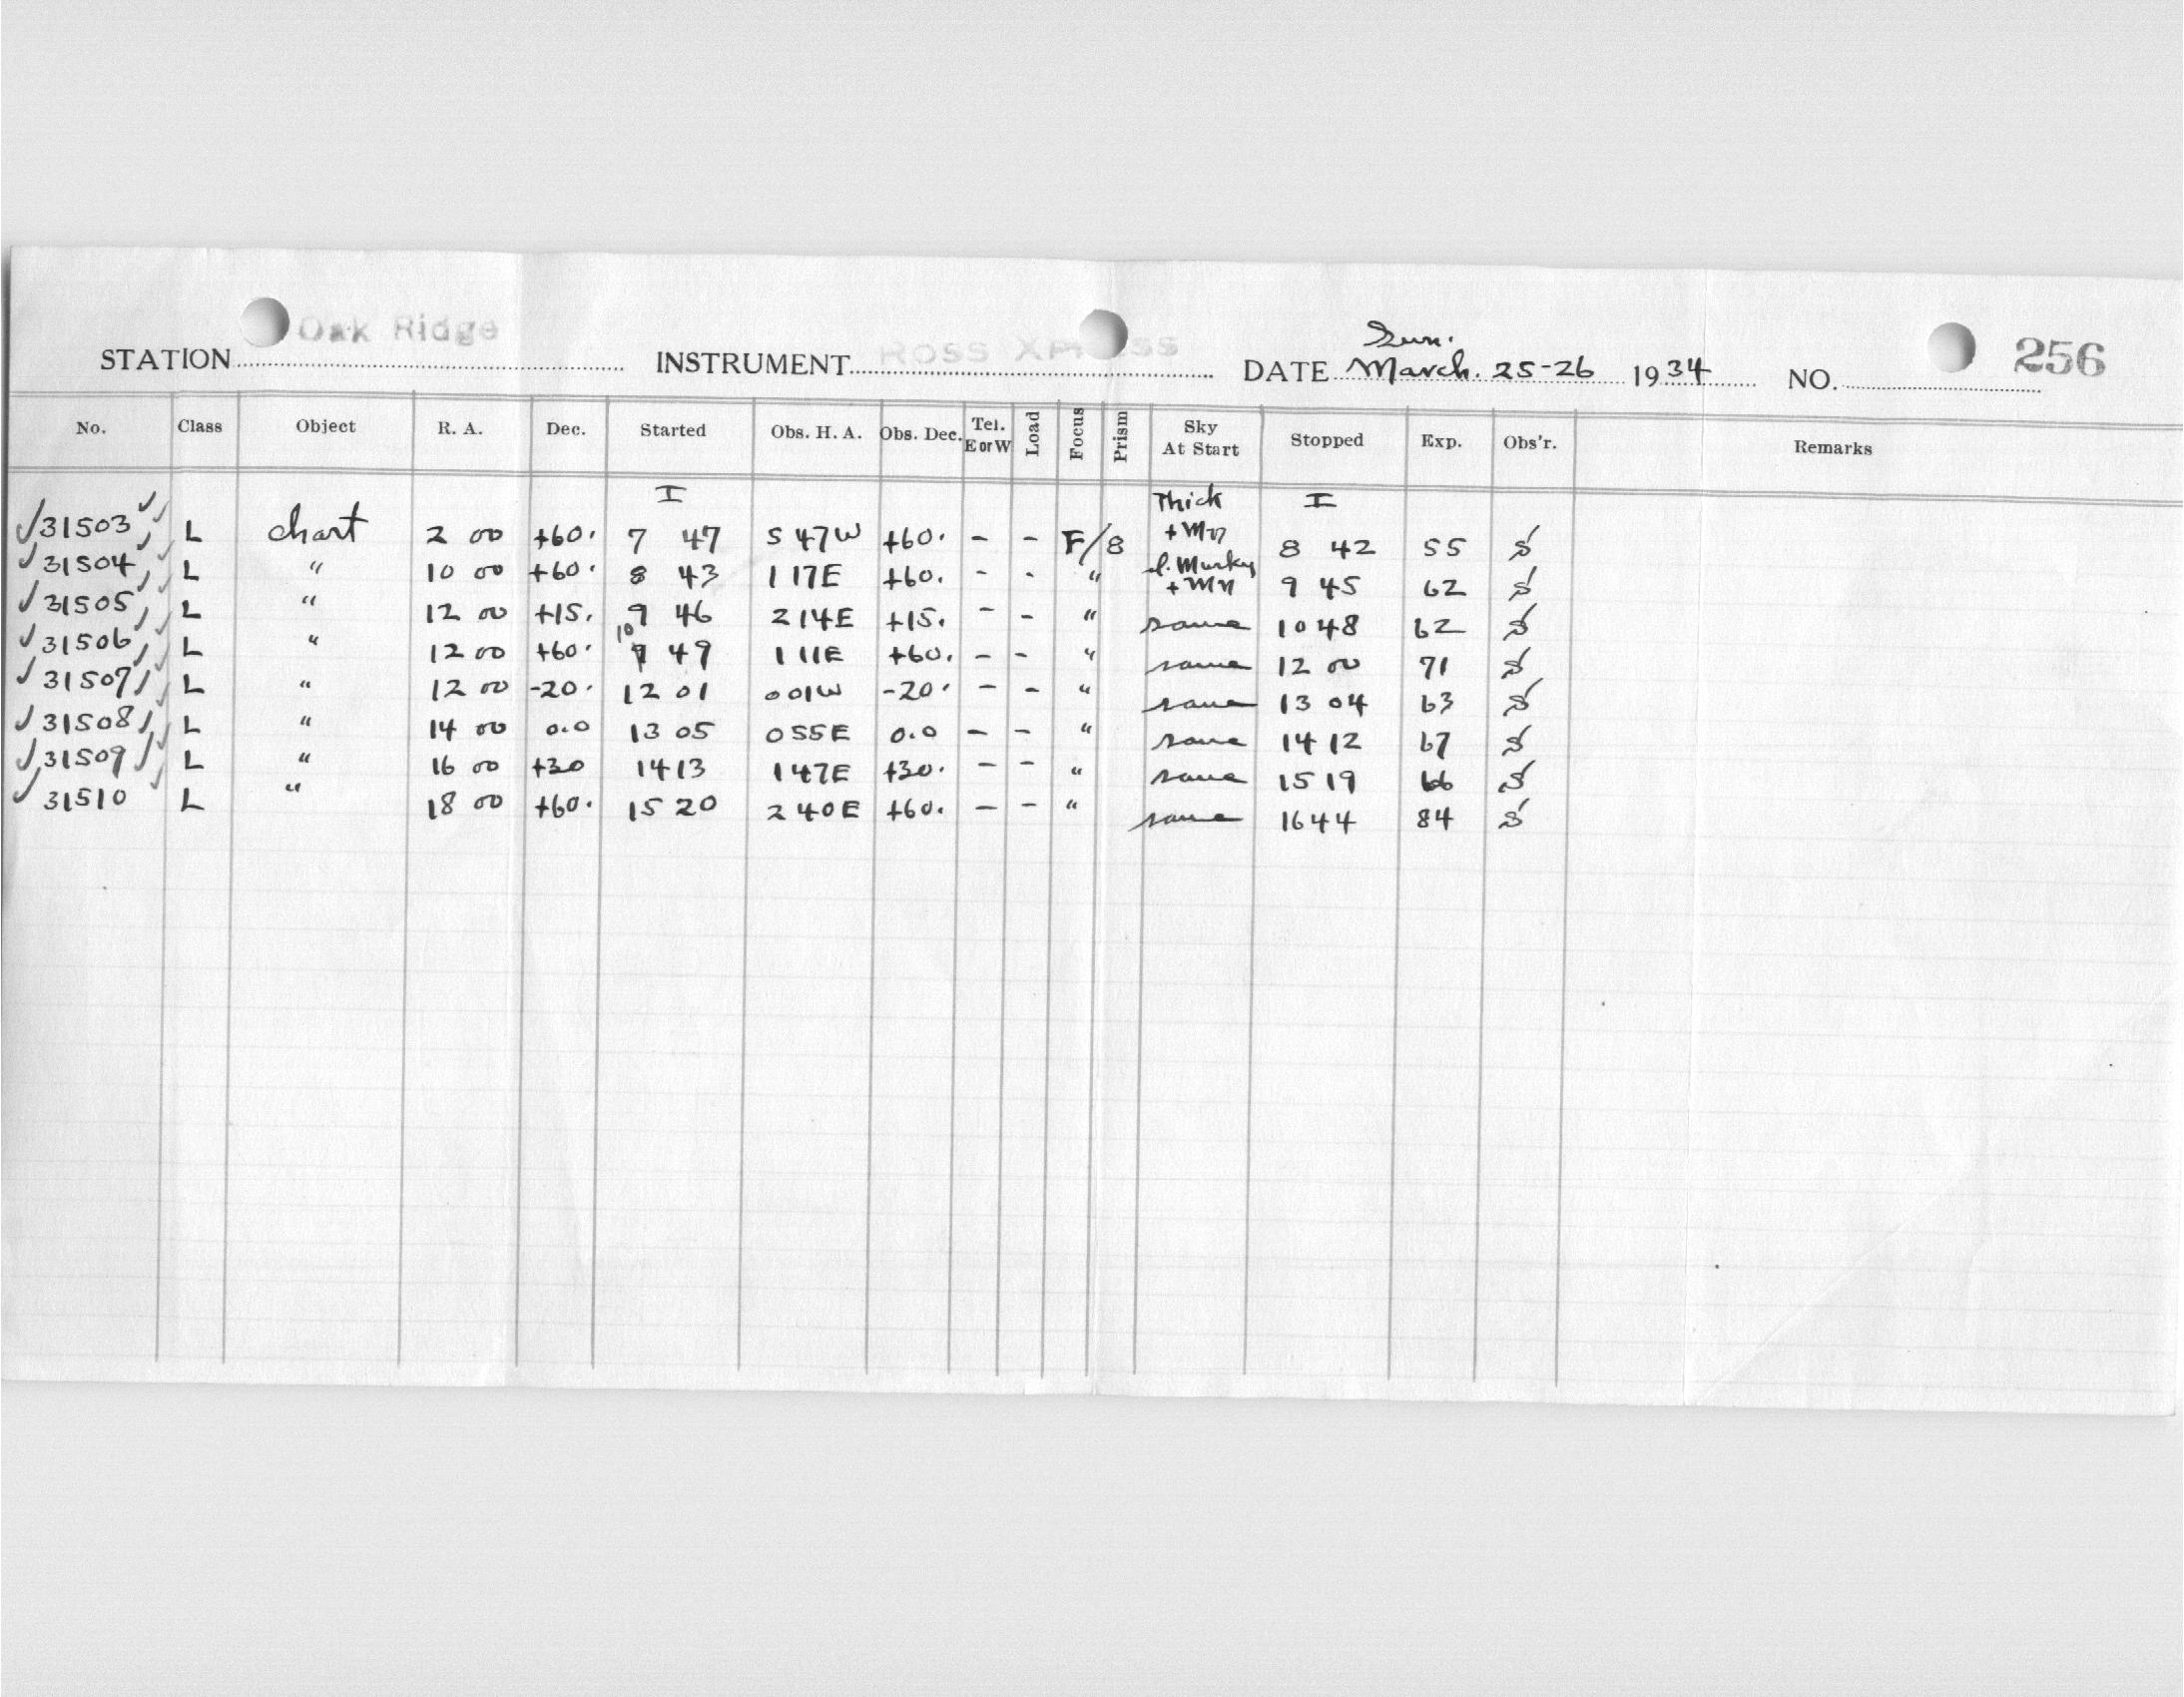 Oak Ridge
Sun.
STATION INSTRUMENT Ross Xpress DATE March. 25-26 1934 NO. 256
No. Class Object R. A. Dec. Started Obs. H. A. Obs. Dec. Tel. E or W Load Focus Prism Sky At Start Stopped Exp. Obs'r. Remarks
I Thick I
31503 L chart 2 00 +60. 7 47 5 47W +60. - - F/8 + Mn 8 42 55 S
31504 L " 10 00 +60. 8 43 1 17E +60. - - " Murky + Mn 9 45 62 S
31505 L " 12 00 +15. 9 46 2 14E +15. - - " same 10 48 62 S
31506 L " 12 00 +60. 10 49 1 11E +60. - - " same 12 00 71 S
31507 L " 12 00 -20. 12 01 0 01W -20. - - " same 13 04 63 S
31508 L " 14 00 0.0 13 05 0 55E 0.0 - - " same 14 12 67 S
31509 L " 16 00 +30 14 13 1 47E +30. - - " same 15 19 66 S
31510 L " 18 00 +60. 15 20 2 40E +60. - - " same 16 44 84 S